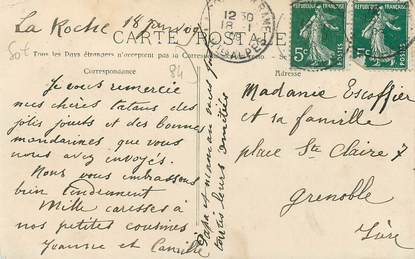 La Roche 18 janv 09
CARTE POSTALE
Tous les Pays étrangers n'acceptent pas la Correspondance
Correspondance
Adresse
84
12 30
18
5c
POSTES
5c
POSTES
Je vous remercie
mes chères tatans des
jolis jouets et des bonnes
mandarines que vous
nous avez envoyés.
Nous vous embrassons
bien tendrement
Mille caresses à
nos petites cousines
et Camille
Papa et maman vous font
toutes leurs amitiés
Madame Escoffier
et sa famille
place Ste Claire 7
Grenoble
Isère